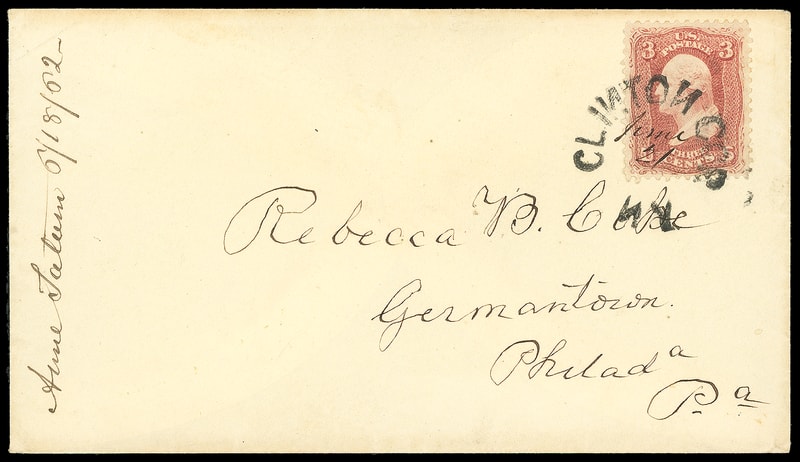 Anne Tatum 6/18/62
3 U.S. 3
POSTAGE
THREE
CENTS
CLINTON
June
21
NY
Rebecca B. Cope
Germantown.
Philada
Pa